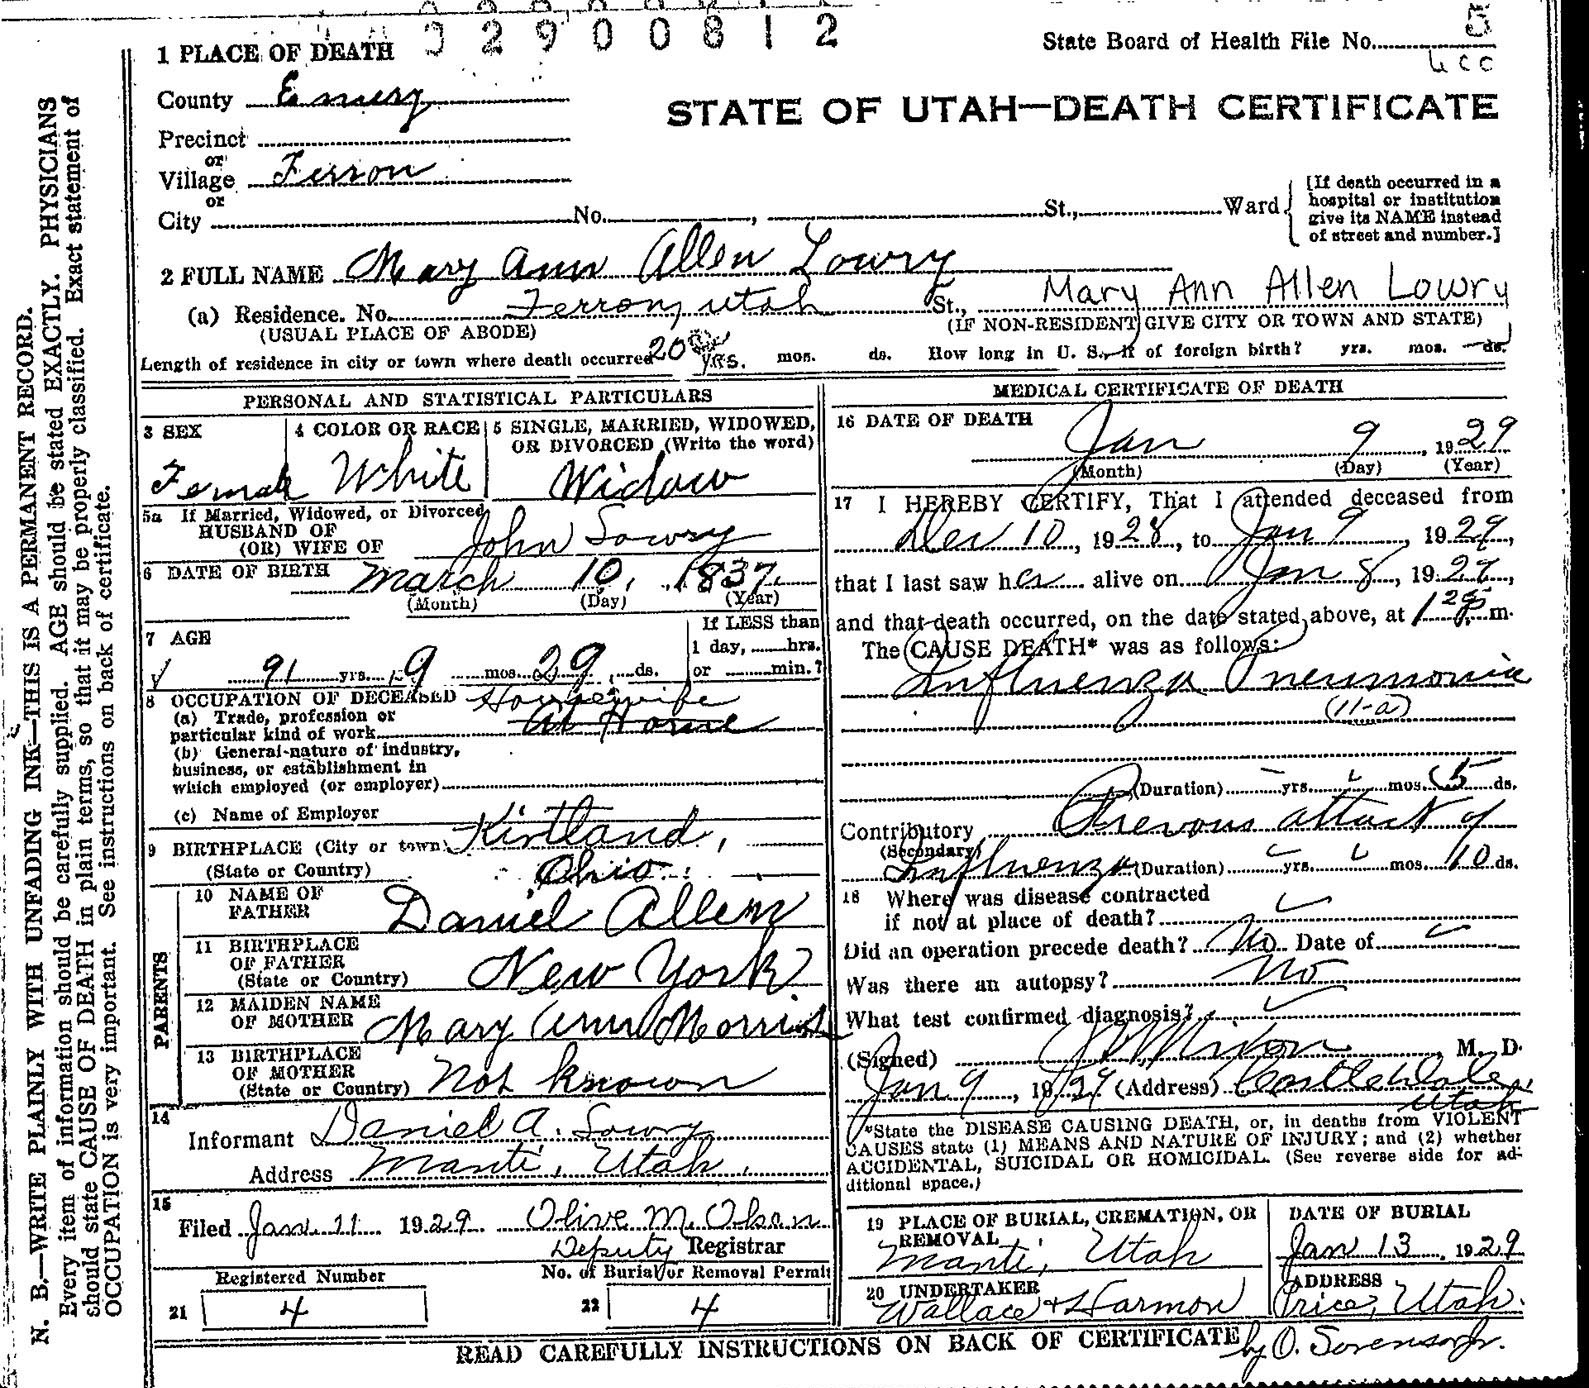 0 2 9 0 0 8 1 2
State Board of Health File No. 5
1 PLACE OF DEATH
County Emery
STATE OF UTAH—DEATH CERTIFICATE
Precinct
or
Village Ferron
or
City No. , St., Ward
[If death occurred in a
hospital or institution
give its NAME instead
of street and number.]
2 FULL NAME Mary Ann Allen Lowry
(a) Residence. No. Ferron, Utah St., Mary Ann Allen Lowry
(USUAL PLACE OF ABODE) (IF NON-RESIDENT GIVE CITY OR TOWN AND STATE)
Length of residence in city or town where death occurred 20 yrs. mos. ds. How long in U. S., if of foreign birth? yrs. mos. ds.
PERSONAL AND STATISTICAL PARTICULARS
3 SEX
Female
4 COLOR OR RACE
White
5 SINGLE, MARRIED, WIDOWED,
OR DIVORCED (Write the word)
Widow
5a If Married, Widowed, or Divorced
HUSBAND OF
(OR) WIFE OF John Lowry
6 DATE OF BIRTH March 10, 1837.
(Month) (Day) (Year)
7 AGE
If LESS than
1 day, hrs.
or min.?
91 yrs. 9 mos. 29 ds.
8 OCCUPATION OF DECEASED Housewife
(a) Trade, profession or
particular kind of work At Home
(b) General nature of industry,
business, or establishment in
which employed (or employer)
(c) Name of Employer
9 BIRTHPLACE (City or town) Kirtland,
(State or Country) Ohio.
PARENTS
10 NAME OF
FATHER Daniel Allen
11 BIRTHPLACE
OF FATHER
(State or Country) New York
12 MAIDEN NAME
OF MOTHER Mary Ann Morris
13 BIRTHPLACE
OF MOTHER
(State or Country) Not known
14
Informant Daniel A. Lowry
Address Manti, Utah.
15
Filed Jan. 11 1929 Olive M. Olson
Deputy Registrar
Registered Number
21 4
No. of Burial or Removal Permit
22 4
MEDICAL CERTIFICATE OF DEATH
16 DATE OF DEATH
Jan 9, 1929
(Month) (Day) (Year)
17 I HEREBY CERTIFY, That I attended deceased from
Dec 10, 1928, to Jan 9, 1929,
that I last saw her alive on Jan 8, 1929,
and that death occurred, on the date stated above, at 1 m.
The CAUSE DEATH* was as follows:
Influenza Pneumonia
(11-a)
(Duration) yrs. mos. 5 ds.
Contributory Prevous attack of
(Secondary) Influenza (Duration) yrs. mos. 10 ds.
18 Where was disease contracted
if not at place of death?
Did an operation precede death? No Date of
Was there an autopsy? No
What test confirmed diagnosis?
(Signed) Nixon, M. D.
Jan 9, 1929 (Address) Castle Dale,
Utah
*State the DISEASE CAUSING DEATH, or, in deaths from VIOLENT
CAUSES state (1) MEANS AND NATURE OF INJURY; and (2) whether
ACCIDENTAL, SUICIDAL OR HOMICIDAL. (See reverse side for ad-
ditional space.)
19 PLACE OF BURIAL, CREMATION, OR
REMOVAL
Manti, Utah
DATE OF BURIAL
Jan 13, 1929
20 UNDERTAKER
Wallace & Harmon
ADDRESS
Price, Utah.
READ CAREFULLY INSTRUCTIONS ON BACK OF CERTIFICATE by O. Sorenson Jr.
N. B.—WRITE PLAINLY WITH UNFADING INK—THIS IS A PERMANENT RECORD.
Every item of information should be carefully supplied. AGE should be stated EXACTLY. PHYSICIANS
should state CAUSE OF DEATH in plain terms, so that it may be properly classified. Exact statement of
OCCUPATION is very important. See instructions on back of certificate.